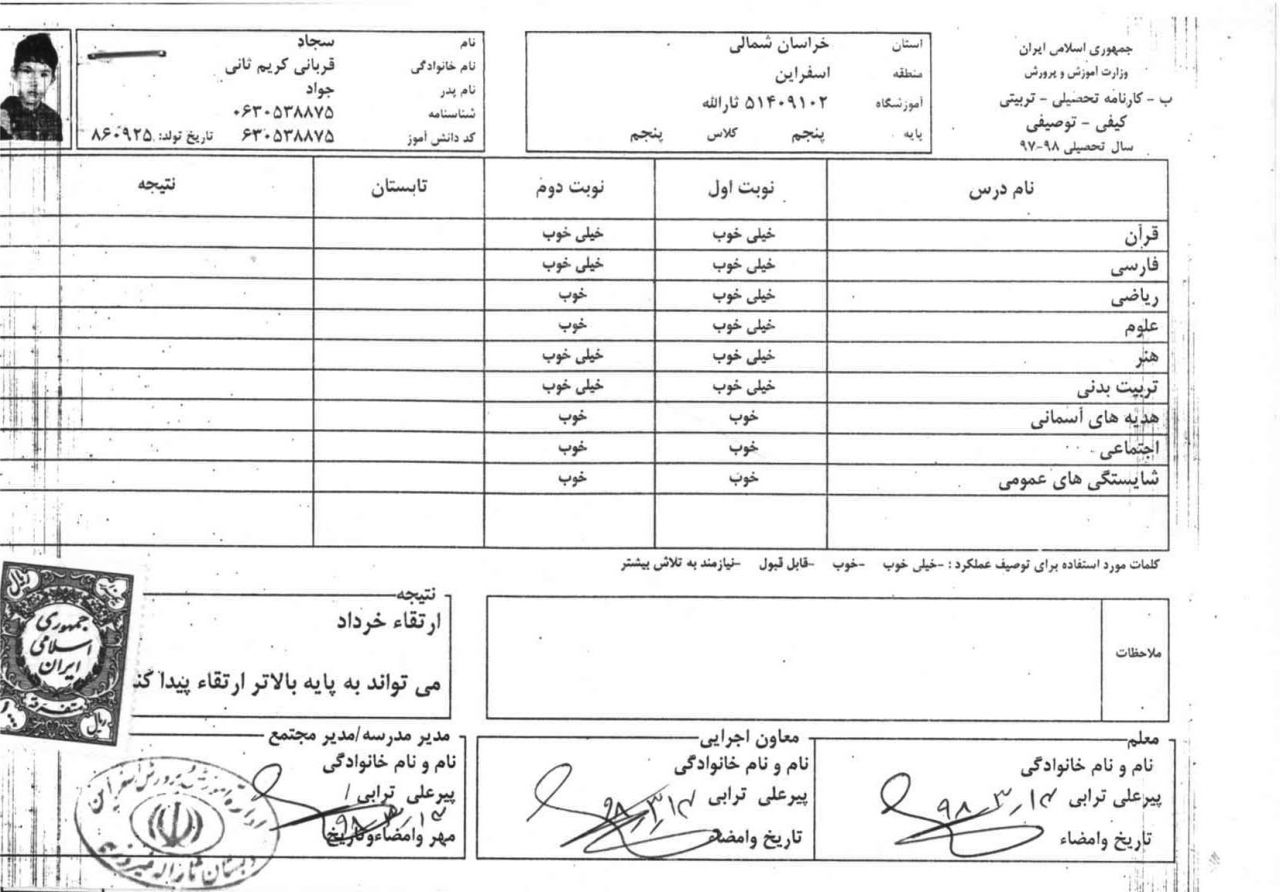 جمهوری اسلامی ایران
وزارت آموزش و پرورش
ب - کارنامه تحصیلی - تربیتی
کیفی - توصیفی
سال تحصیلی ۹۸-۹۷
استان خراسان شمالی
منطقه اسفراین
آموزشگاه ۵۱۴۰۹۱۰۲ ثارالله
پایه پنجم کلاس پنجم
نام سجاد
نام خانوادگی قربانی کریم ثانی
نام پدر جواد
شناسنامه ۰۶۳۰۵۳۸۸۷۵
کد دانش آموز ۶۳۰۵۳۸۸۷۵ تاریخ تولد: ۸۶۰۹۲۵
نام درس نوبت اول نوبت دوم تابستان نتیجه
قرآن خیلی خوب خیلی خوب
فارسی خیلی خوب خیلی خوب
ریاضی خیلی خوب خوب
علوم خیلی خوب خوب
هنر خیلی خوب خیلی خوب
تربیت بدنی خیلی خوب خیلی خوب
هدیه های آسمانی خوب خوب
اجتماعی خوب خوب
شایستگی های عمومی خوب خوب
کلمات مورد استفاده برای توصیف عملکرد : -خیلی خوب -خوب -قابل قبول -نیازمند به تلاش بیشتر
ملاحظات
نتیجه
ارتقاء خرداد
می تواند به پایه بالاتر ارتقاء پیدا
ریال
جمهوری
اسلامی
ایران
متفرقه
ریال
معلم
نام و نام خانوادگی
پیرعلی ترابی
تاریخ وامضاء
معاون اجرایی
نام و نام خانوادگی
پیرعلی ترابی
تاریخ وامضاء
مدیر مدرسه/مدیر مجتمع
نام و نام خانوادگی
پیرعلی ترابی
مهر وامضاءوتاریخ
اداره آموزش و پرورش اسفراین